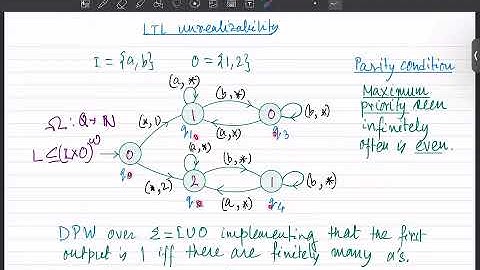 LTL unrealizability
I = {a,b} O = {1,2}
Parity condition
Maximum
priority seen
infinitely
often is even.
Ω: Q→ℕ
L ⊆ (I×O)^ω
(a,*)
(b,*)
1
0
(b,*)
(*,1)
q1
(a,*)
q3
0
q0
(a,*)
(*,2)
(b,*)
2
1
(b,*)
(a,*)
q4
DPW over Σ=I∪O implementing that the first
output is 1 iff there are finitely many a's.